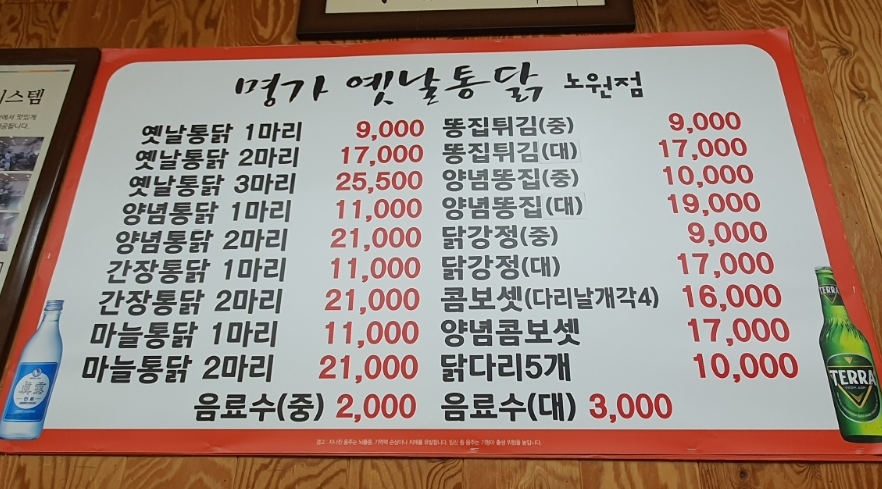 명가 옛날통닭 노원점
옛날통닭 1마리 9,000
옛날통닭 2마리 17,000
옛날통닭 3마리 25,500
양념통닭 1마리 11,000
양념통닭 2마리 21,000
간장통닭 1마리 11,000
간장통닭 2마리 21,000
마늘통닭 1마리 11,000
마늘통닭 2마리 21,000
음료수(중) 2,000
똥집튀김(중) 9,000
똥집튀김(대) 17,000
양념똥집(중) 10,000
양념똥집(대) 19,000
닭강정(중) 9,000
닭강정(대) 17,000
콤보셋(다리날개각4) 16,000
양념콤보셋 17,000
닭다리5개 10,000
음료수(대) 3,000
스템
TERRA
TERRA